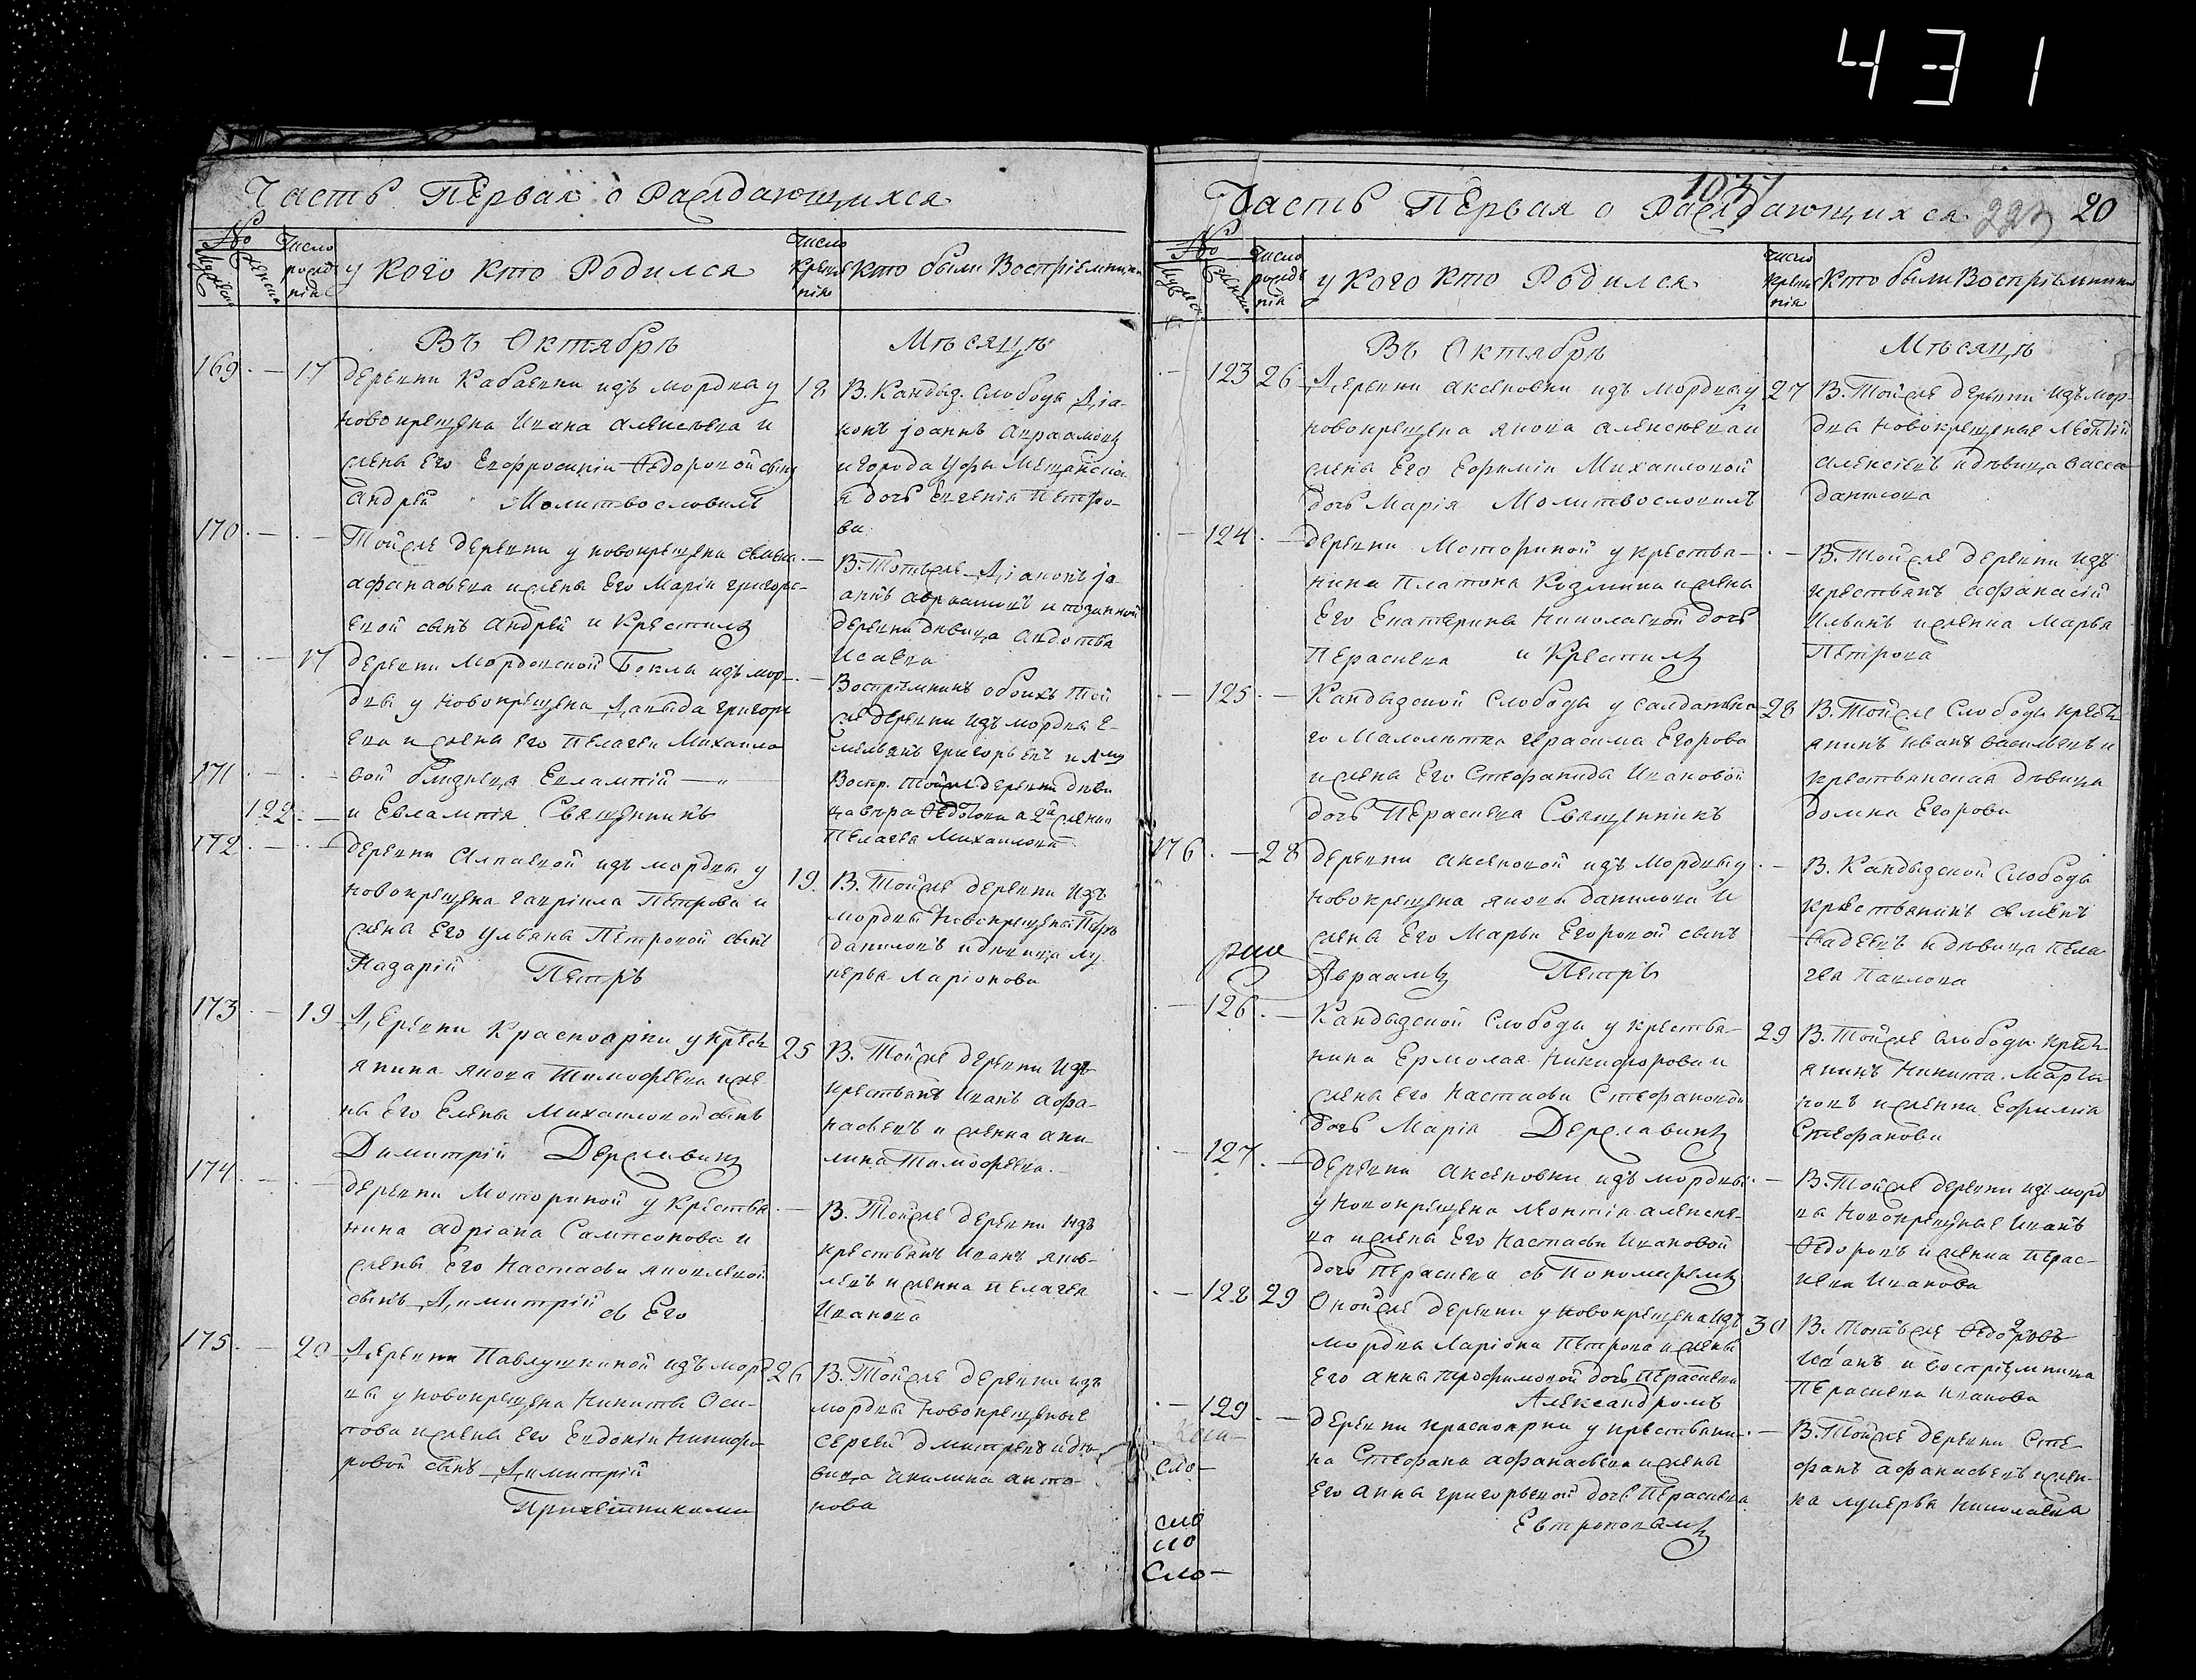 431
Часть Первая о Раждающихся
№
Мужеск
Женска
Число рожденія
У кого кто Родился
Число Крещенія
Кто были Воспріемники
Въ Октябрѣ
Мѣсяцѣ
169 — 17
деревни Кабаевки изъ мордвы у
новокрещена Ивана алексѣева и
жены Его Евфросиніи Ѳедоровой сынъ
андрей Молитвословилъ
18
В. Кандыз. Слободы Діа-
конъ іоаннъ авраамовъ
и города Уфы Мещанска-
я дочь Евгенія Петро-
ва
170 — —
Тойже деревни у новокрещена
афанасьева и жены Его Маріи григорь-
евой сынъ андрей и Крестилъ
В. Тотъже Діаконъ іо-
аннъ авраамовъ и
деревни дѣвица авдотья
Исаева
— — 17
деревни Мордовской Боклы изъ мор-
двы у новокрещена Давыда григорь
ева и жены его Пелагеи Михаило
вой близнецы Евлампій
и Евлампія Священникъ
171
122
Воспріемникъ обоихъ той
же деревни изъ мордвы Е-
мельянъ григорьевъ и
Воспр. тойже деревни дѣви
ца вѣра Ѳедотова а 2й женка
Пелагея Михаилова
172 — —
деревни Алпаевой изъ мордвы у
новокрещена гавріила Петрова и
жены Его Ульяны Петровой сынъ
Назарій Петръ
19
В. Тойже деревни Изъ
мордвы Новокрещены Петръ
даниловъ и дѣвица Лу
керья Ларіонова
173 — 19
Деревни Красноярки у крестъ
янина якова Тимофеева и же
ны Его Елены Михаиловой сынъ
Димитрій Державинъ
25
В. Тойже деревни Изъ
крестьянъ Иванъ афа-
насьевъ и женка аку
лина Тимофеева
174 — —
деревни Моториной у Крестья
нина адріана Сампсонова и
жены Его Настасьи яковлевой
сынъ Димитрій съ Его
В. Тойже деревни изъ
крестьянъ Иванъ яков-
левъ и женка пелагея
Иванова
175 — 20
Деревни Павлушкиной изъ морд
вы у новокрещена Никиты Оси-
пова и жены Его Евдокіи Никифо-
ровой сынъ Димитрій
Причетниками
26
В. Тойже деревни изъ
мордвы новокрещеные
Сергей дмитревъ и дѣ-
вица акилина анто-
нова
Часть Первая о Раждающихся
1037
223
20
№
Мужеск
Женска
Число рожденія
У кого кто Родился
Число крещенія
Кто были Воспріемники
Въ Октябрѣ
Мѣсяцѣ
— 123 26
Деревни аксеновки изъ мордвы у
новокрещена якова алексѣева и
жены Его Ефиміи Михаиловой
дочь Марія Молитвословилъ
27
В. Тойже деревни изъ мор-
двы новокрещеные Леонтій
алексѣевъ и дѣвица васса
данилова
— 124 —
деревни Моториной у крестья-
нина Платона Козмина и жены
Его Екатерины Николаевой дочь
Пераскева и Крестилъ
В. Тойже деревни изъ
крестьянъ афанасій
Ильинъ и женка Марья
Петрова
— 125 —
Кандызской Слободы у салдатска
го Малолѣтка герасима Егорова
и жены Его Стефаниды Ивановой
дочь Пераскева Священникъ
28
В. Тойже Слободы крестъ
янинъ Иванъ васильевъ и
крестьянская дѣвица
домна Егорова
176 — 28
деревни аксеновой изъ мордвы у
новокрещена якова данилова И
жены Его Марьи Егоровой сынъ
Авраамъ Петръ
В. Кандызской Слободы
крестьянинъ семенъ
Ѳадеевъ и дѣвица пела-
гея Павлова
— 126 —
Кандызской Слободы у крестья-
нина Ермолая Никифорова и
жены Его Настасьи Стефановой
дочь Марія Державинъ
29
В. Тойже Слободы крестъ
янинъ Никита Марты-
новъ и женка Ефимія
Стефанова
— 127 —
деревни аксеновки изъ мордвы
у новокрещена Леонтія алексѣе-
ва и жены Его Настасьи Ивановой
дочь Пераскева съ Пономаремъ
В. Тойже деревни изъ морд
вы Новокрещеные Иванъ
Ѳедоровъ и женка Перас-
кева Иванова
— 128 29
Онойже деревни у новокрещена изъ
мордвы Ларіона Петрова и жены
Его анны трофимовой дочь Пераскева
Александромъ
30
В. тотъже Ѳедоровъ
Иванъ и воспріемница
Пераскева иванова
— 129 —
деревни красноярки у крестьяни-
на Стефана афанасьева и жены
Его анны григорьевой дочь Пераскева
Евтроповымъ
В. Тойже деревни Сте-
фанъ афанасьевъ и жен-
ка лукерья Николаева
сло-
сло
сло-